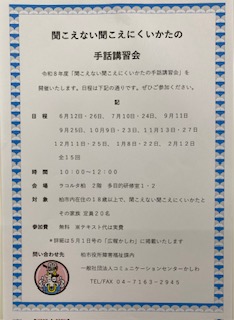 聞こえない聞こえにくいかたの
手話講習会
令和8年度「聞こえない聞こえにくいかたの手話講習会」を
開催いたします。日程は下記の通りです。ぜひご参加ください。
記
日 程 6月12日・26日、7月10日・24日、9月11日
9月25日、10月9日・23日、11月13日・27日
12月11日・25日、1月8日・22日、2月12日
全15回
時 間 10:00~12:00
会 場 ラコルタ柏 2階 多目的研修室1・2
対 象 柏市内在住の18歳以上で、聞こえない聞こえにくいかたと
その家族 定員20名
参加費 無料 ※テキスト代は実費
*詳細は5月1日号の「広報かしわ」に掲載いたします
問い合わせ先 柏市役所障害福祉課内
一般社団法人コミュニケーションセンターかしわ
TEL/FAX 04-7163-2945